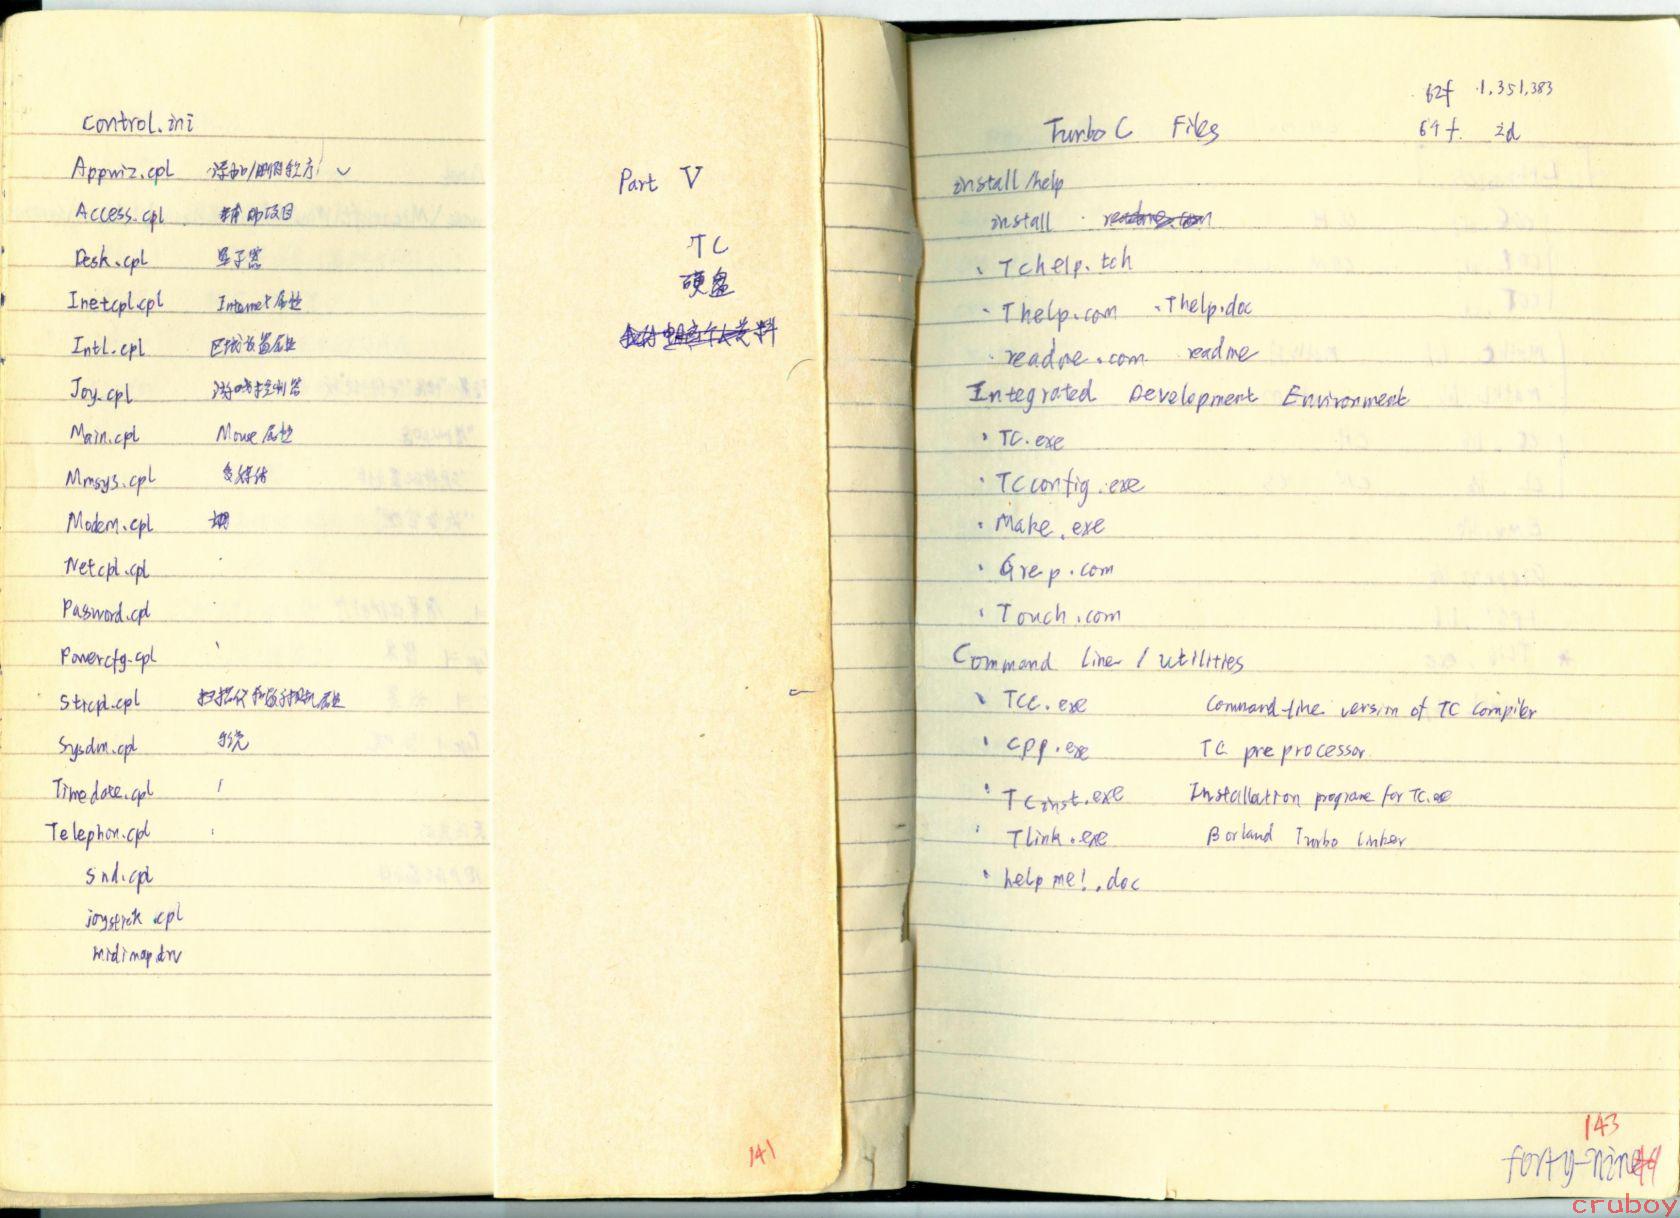 control.ini
Appwiz.cpl 添加/删除程序
Access.cpl 辅助项目
Desk.cpl 显示器
Inetcpl.cpl Internet 属性
Intl.cpl 区域设置属性
Joy.cpl 游戏控制器
Main.cpl Mouse 属性
Mmsys.cpl 多媒体
Modem.cpl
Netcpl.cpl
Password.cpl
Powercfg.cpl
Sticpl.cpl 扫描仪和数字相机属性
Sysdm.cpl 系统
Timedate.cpl
Telephon.cpl
Snd.cpl
joystick.cpl
midimap.drv
Part V
TC
硬盘
141
62f 1,351,383
Turbo C Files 64f. 2d
install/help
install
Tchelp.tch
Thelp.com Thelp.doc
readme.com readme
Integrated Development Environment
TC.exe
TCconfig.exe
Make.exe
Grep.com
Touch.com
Command Liner / Utilities
TCC.exe Command-line version of TC compiler
cpp.exe TC preprocessor
TCinst.exe Installation programe for TC.exe
Tlink.exe Borland Turbo linker
help me!.doc
143
forty-nine
cruboy